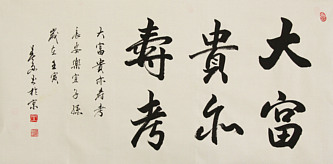 大富
貴亦
壽考
大富貴亦壽考
長安樂宜子孫
歲在壬寅
書於京